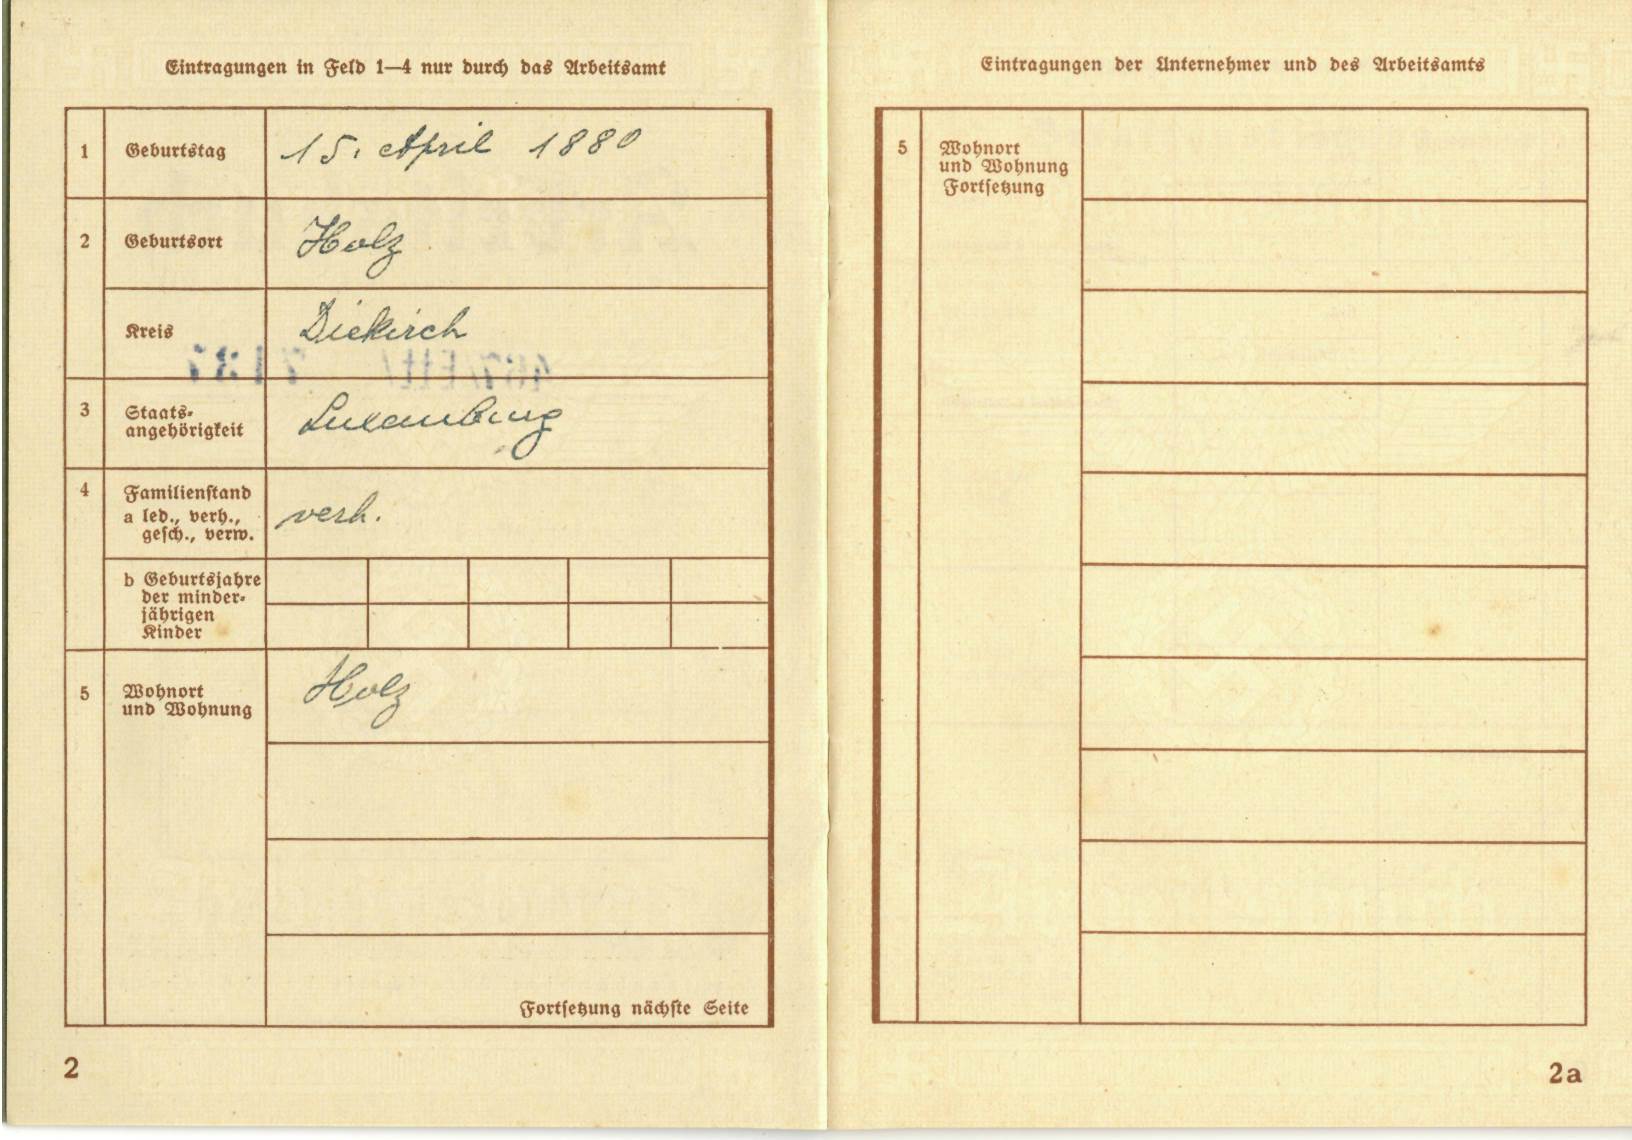 Eintragungen in Feld 1—4 nur durch das Arbeitsamt
1 Geburtstag 15. April 1880
2 Geburtsort Holz
Kreis Diekirch
3 Staats-
angehörigkeit
Luxemburg
4 Familienstand
a led., verh.,
gesch., verw.
verh.
b Geburtsjahre
der minder-
jährigen
Kinder
5 Wohnort
und Wohnung
Holz
Fortsetzung nächste Seite
2
Eintragungen der Unternehmer und des Arbeitsamts
5 Wohnort
und Wohnung
Fortsetzung
2a